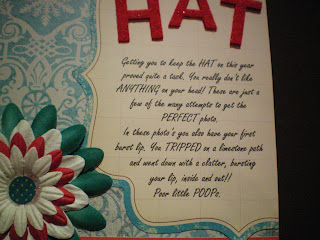 HAT
Getting you to keep the HAT on this year
proved quite a task. You really don't like
ANYTHING on your head! These are just a
few of the many attempts to get the
PERFECT photo.
In these photo's you also have your first
burst lip. You TRIPPED on a limestone path
and went down with a clatter, bursting
your lip, inside and out!!
Poor little POOPs.